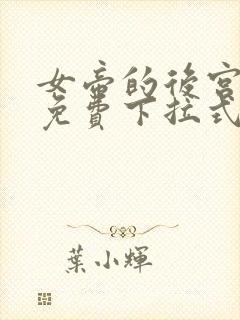 女帝的後宮
免費下拉式
葉小輝